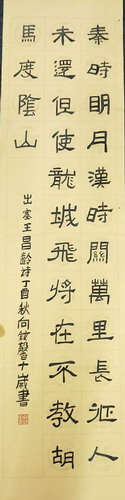 秦時明月漢時關萬里長征人
未還但使龍城飛將在不教胡
馬度陰山
出塞王昌齡詩丁酉秋向	十歲書